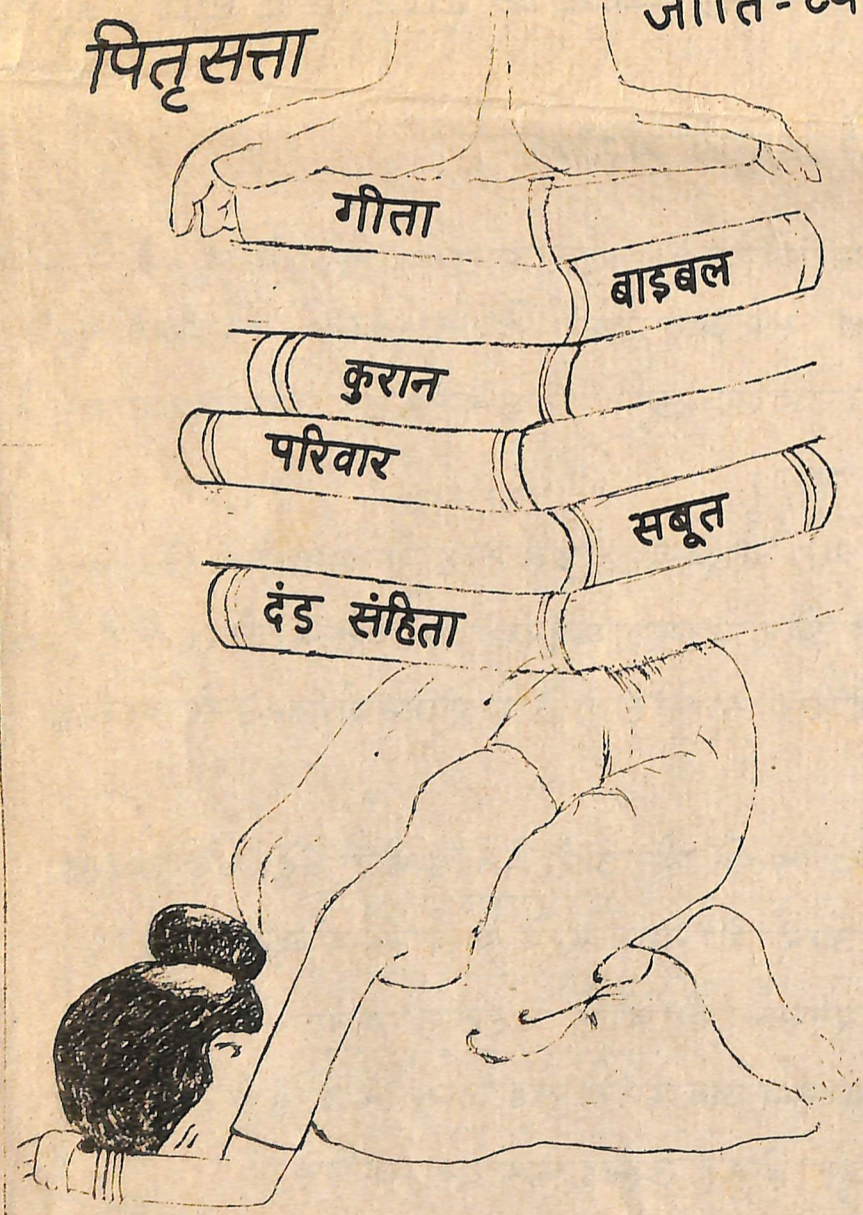 पितृसत्ता
गीता
बाइबल
कुरान
परिवार
सबूत
दंड संहिता